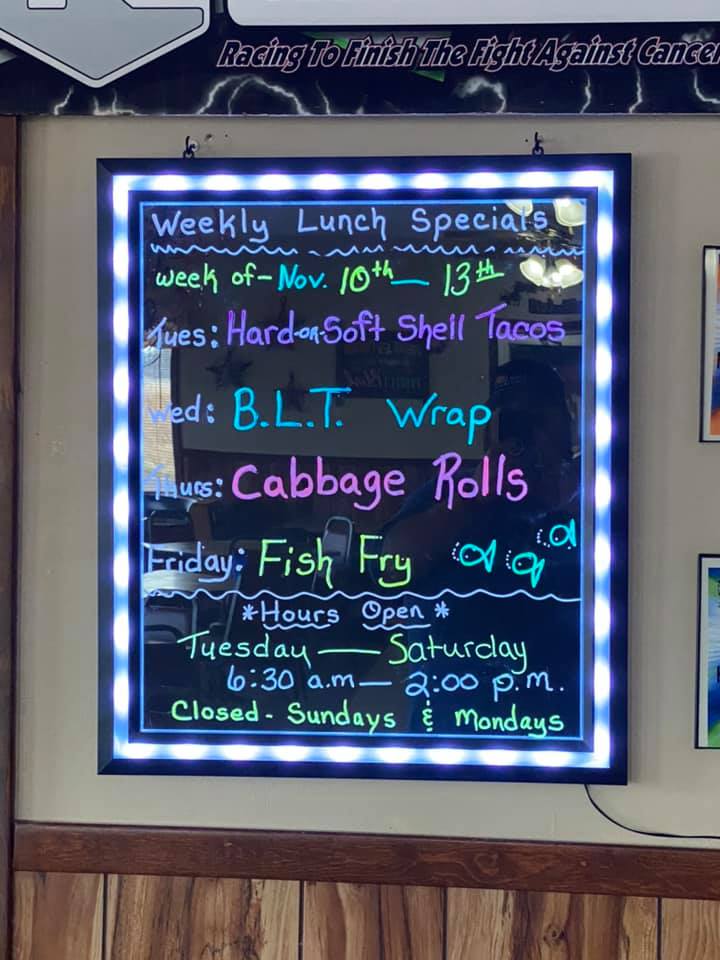 Racing To Finish The Fight Against Cancer
Weekly Lunch Specials
week of- Nov. 10th — 13th
Tues: Hard-OR-Soft Shell Tacos
Wed: B.L.T. Wrap
Thurs: Cabbage Rolls
Friday: Fish Fry
*Hours Open*
Tuesday — Saturday
6:30 a.m — 2:00 p.m.
Closed - Sundays & Mondays